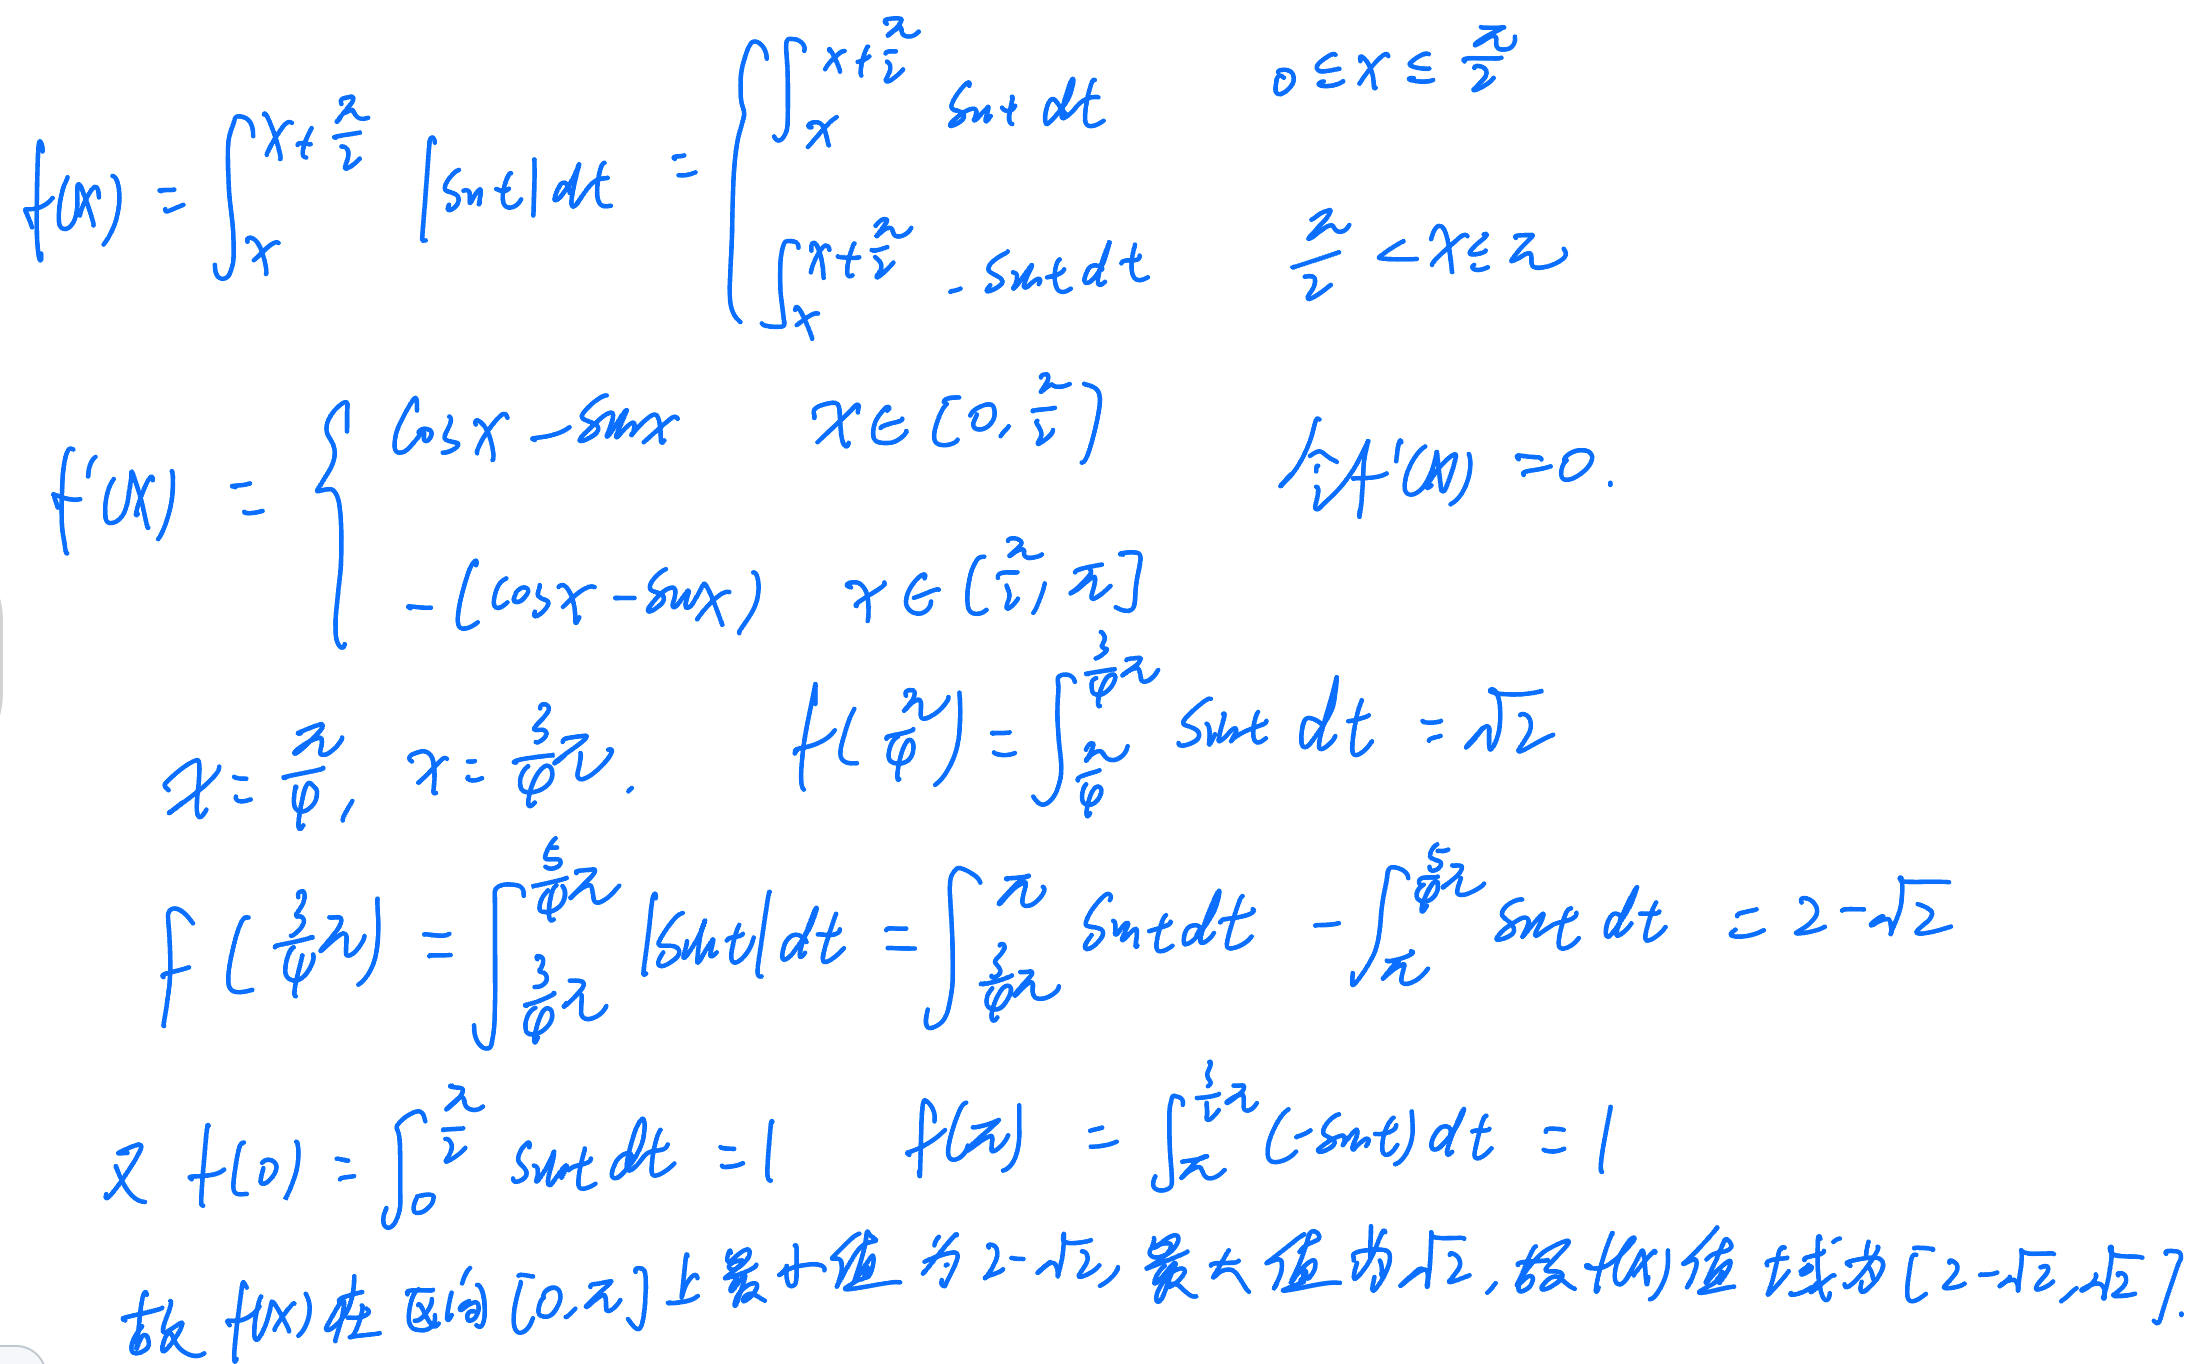 f(x) = ∫_x^{x+π/2} |sint| dt = { ∫_x^{x+π/2} sint dt   0 ≤ x ≤ π/2
∫_x^{x+π/2} -sint dt   π/2 < x ≤ π
f'(x) = { cosx - sinx   x ∈ [0, π/2)   令f'(x) = 0.
-(cosx - sinx)   x ∈ (π/2, π]
x = π/4, x = 3/4 π.   f(π/4) = ∫_{π/4}^{3/4 π} sint dt = √2
f(3/4 π) = ∫_{3/4 π}^{5/4 π} |sint| dt = ∫_{3/4 π}^{π} sint dt - ∫_π^{5/4 π} sint dt = 2-√2
又 f(0) = ∫_0^{π/2} sint dt = 1   f(π) = ∫_π^{3/2 π} (-sint) dt = 1
故 f(x) 在区间 [0, π] 上最小值为 2-√2, 最大值为 √2, 故 f(x) 值域为 [2-√2, √2].